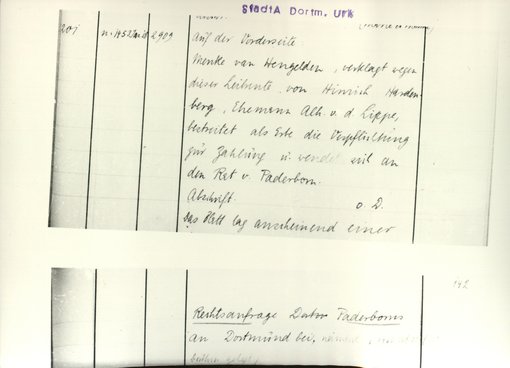 StadtA Dortm. Urk
201 n. 1452 2909
Auf der Vorderseite
Menke van Hengelden, verklagt wegen
dieser Leibrente, von Hinrich Harden-
berg, Ehemann Alh. v. d. Lippe,
bestreitet als Erbe die Verpflichtung
zur Zahlung u. wendet sich an
den Rat v. Paderborn.
Abschrift. o. D.
Das Blatt lag anscheinend einer
142
Rechtsanfrage Paderborns
an Dortmund bei,